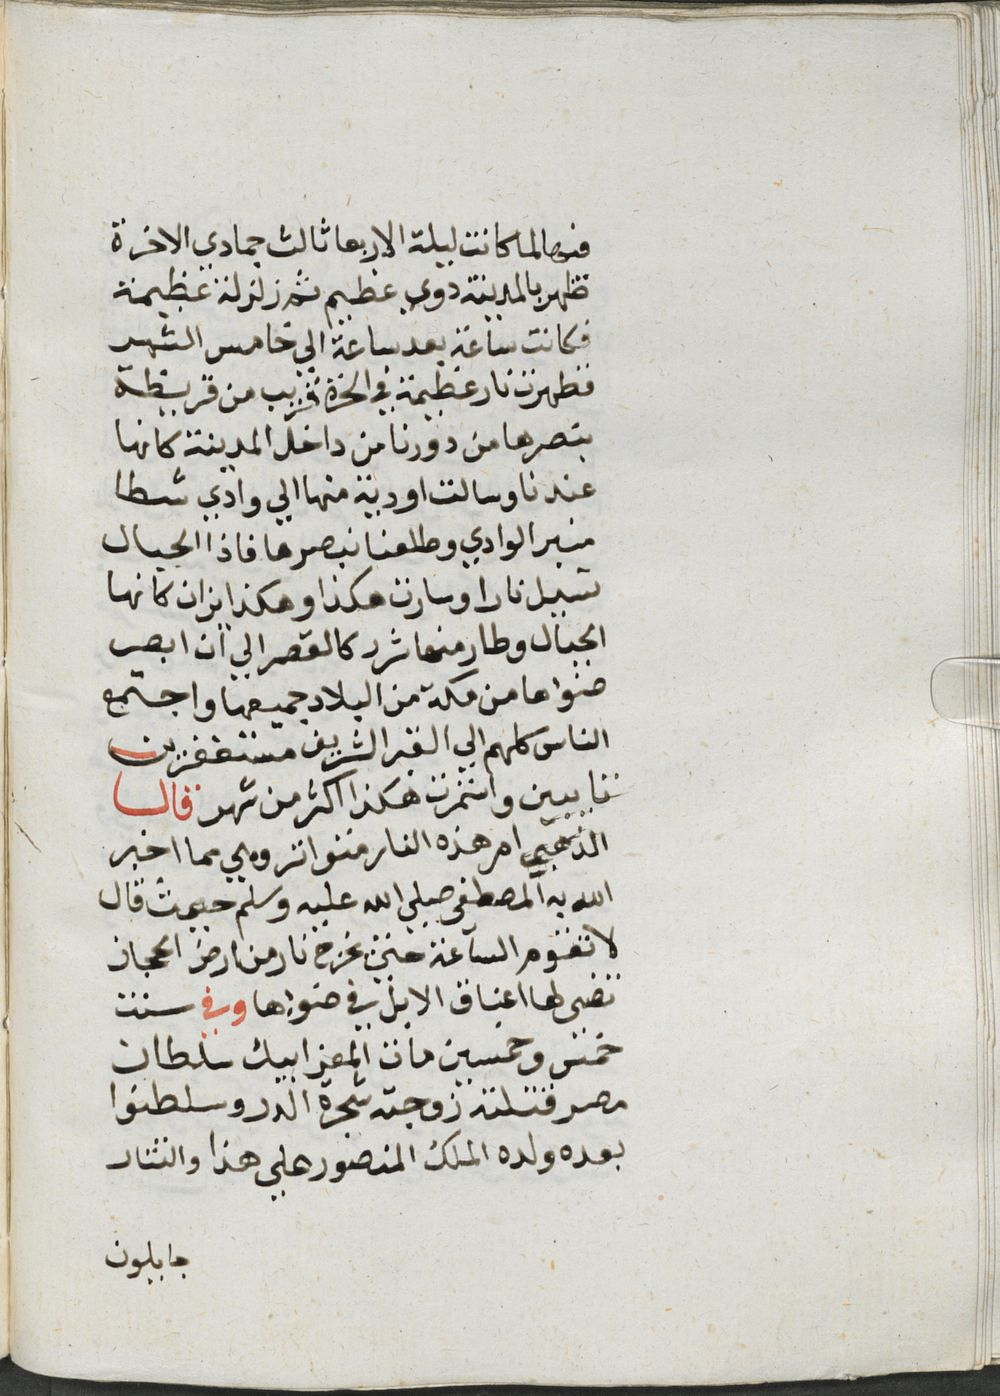 فيها لما كانت ليلة الاربعا ثالث جمادي الاخرة
ظهر بالمدينة دوي عظيم ثم زلزلة عظيمة
فكانت ساعة بعد ساعة الي خامس الشهر
فظهرت نار عظيمة في الحرة قريب من قريظة
نبصرها من دورنا من داخل المدينة كانها
عندنا وسالت اودية منها الي وادي شطا
مسير الوادي وطلعنا نبصرها فاذا الجبال
تسيل نارا وسارت هكذا وهكذا نران كانها
الجبال وطار منها شرر كالقصر الي ان ابصر
ضواها من مكة من البلاد جميعها واجتمع
الناس كلهم الي القبر الشريف مستغفرين
تايبين واستمرت هكذا اكثر من شهر قال
الذهبي امر هذه النار متواتر وهي مما اخبر
الله به المصطفي صلي الله عليه وسلم حيث قال
لا تقوم الساعة حتي تخرج نار من ارض الحجاز
تضي لها اعناق الابل في ضواها وفي سنت
خمس وخمسين مات المعز ايبك سلطان
مصر قتلته زوجته شجرة الدر وسلطنوا
بعده ولده الملك المنصور علي هذا والتتار
جايلون